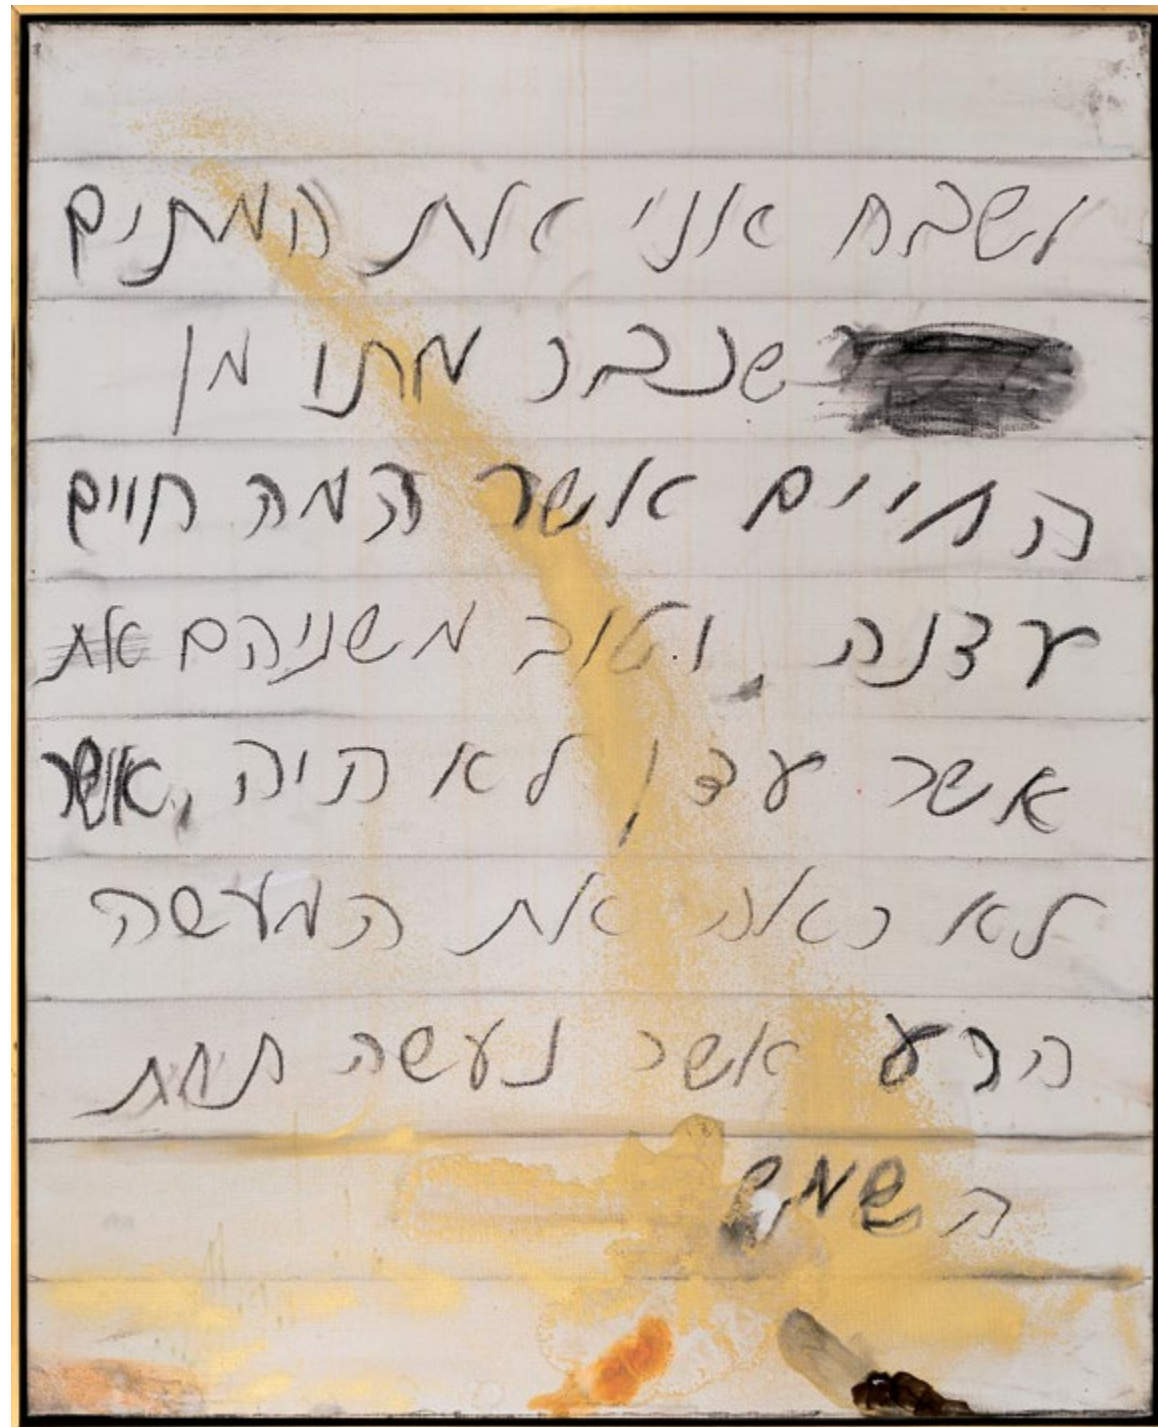 ושבח אני את המתים
שכבר מתו מן
החיים אשר המה חיים
עדנה. וטוב משניהם את
אשר עדן לא היה, אשר
לא ראה את המעשה
הרע אשר נעשה תחת
השמש